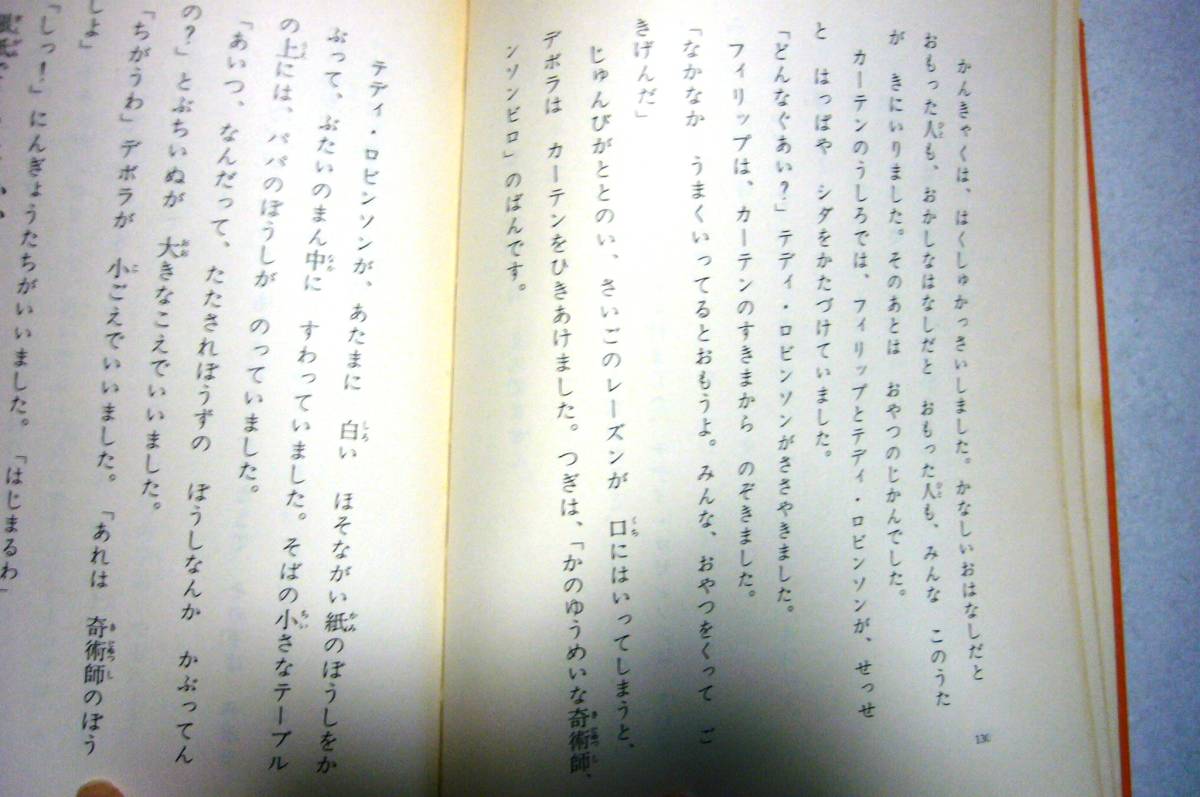 かんきゃくは、はくしゅかっさいしました。かなしいおはなしだと
おもった人も、おかしなはなしだと　おもった人も、みんな　このうた
が　きにいりました。そのあとは　おやつのじかんでした。
カーテンのうしろでは、フィリップとテディ・ロビンソンが、せっせ
と　はっぱや　シダをかたづけていました。
「どんなぐあい？」テディ・ロビンソンがささやきました。
フィリップは、カーテンのすきまから　のぞきました。
「なかなか　うまくいってるとおもうよ。みんな、おやつをくって　ご
きげんだ」
じゅんびがととのい、さいごのレーズンが　口にはいってしまうと、
デボラは　カーテンをひきあけました。つぎは、「かのゆうめいな奇術師、
ンソンビロ」のばんです。
130
テディ・ロビンソンが、あたまに　白い　ほそながい紙のぼうしをか
ぶって、ぶたいのまん中に　すわっていました。そばの小さなテーブル
の上には、パパのぼうしが　のっていました。
「あいつ、なんだって、たたされぼうずの　ぼうしなんか　かぶってん
の？」とぶちいぬが　大きなこえでいいました。
「ちがうわ」デボラが　小ごえでいいました。「あれは　奇術師のぼう
しよ」
「しっ！」にんぎょうたちがいいました。「はじまるわ」